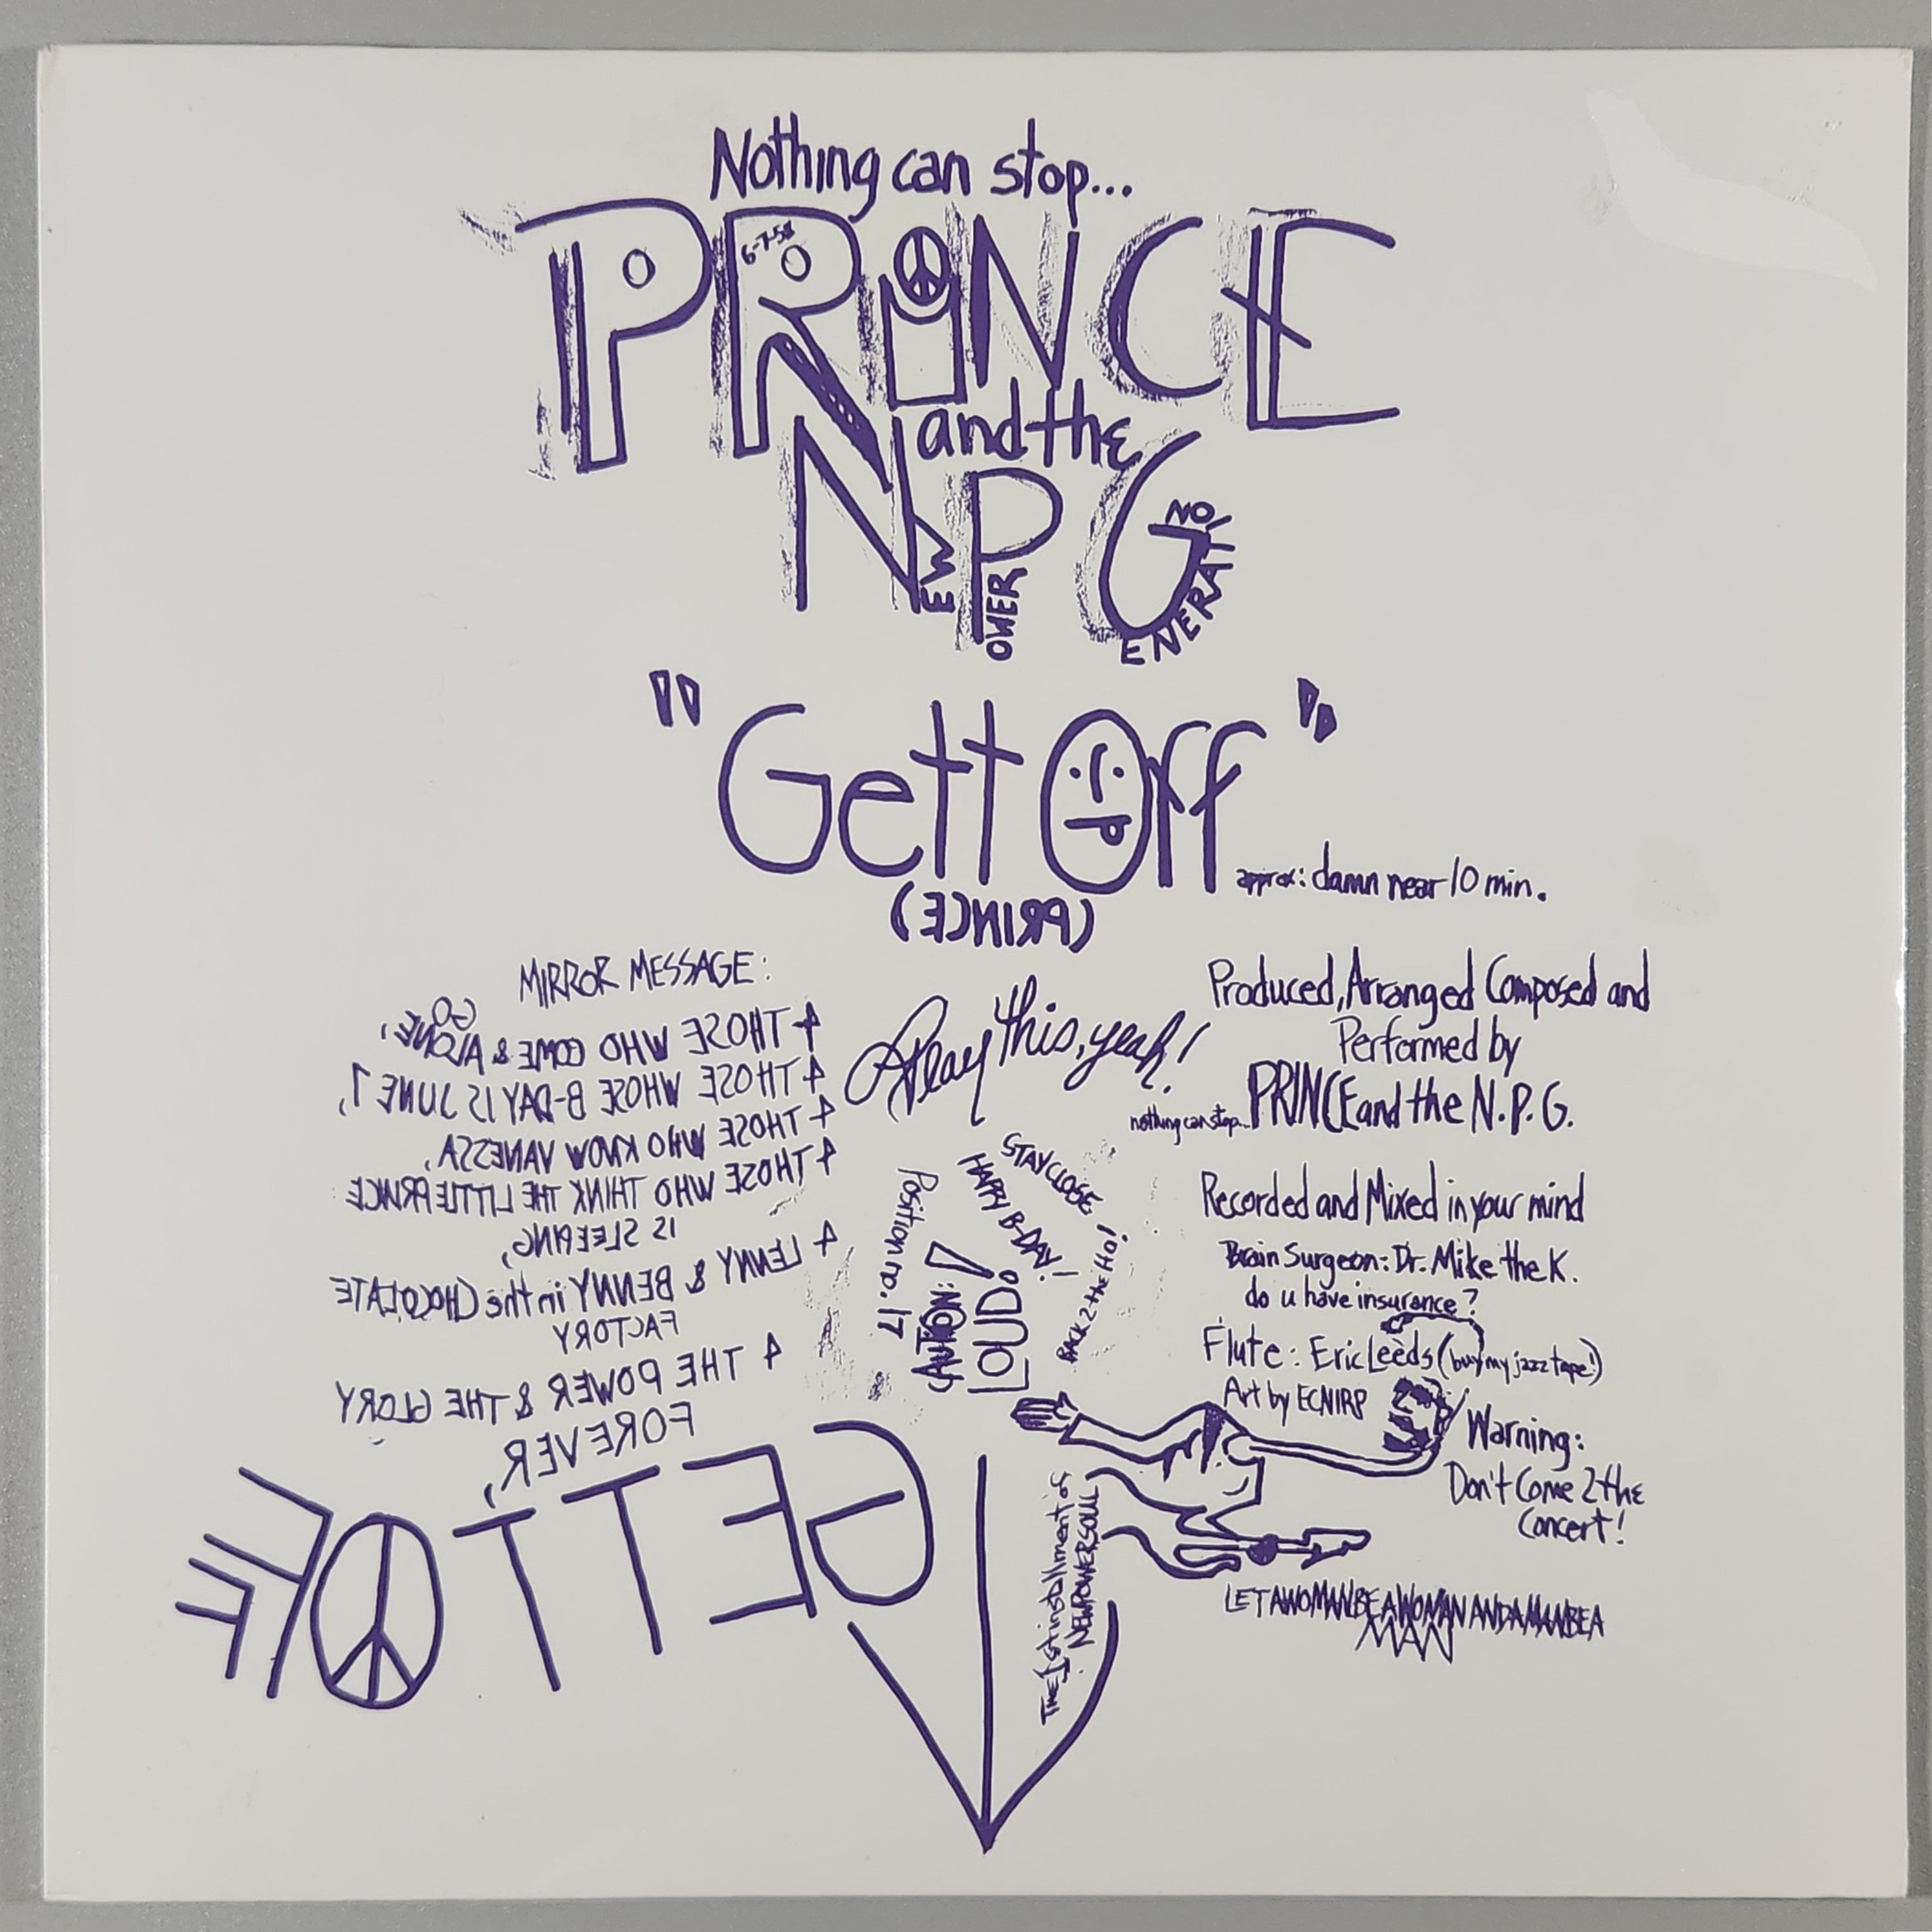 Nothing can stop...
PRINCE
6-7-58
and the
NPG
NEW POWER GENERATION
"Gett Off"
approx: damn near 10 min.
(PRINCE)
MIRROR MESSAGE:
4 THOSE WHO COME & GO ALONE,
4 THOSE WHOSE B-DAY IS JUNE 7,
4 THOSE WHO KNOW VANESSA,
4 THOSE WHO THINK THE LITTLE PRINCE
IS SLEEPING,
4 LENNY & BENNY in the CHOCOLATE
FACTORY
4 THE POWER & THE GLORY
FOREVER,
GETT OFF
Play this, yeah!
STAY CLOSE
HAPPY B-DAY!
BACK 2 the HO!
Position no. 17
CAUTION:
LOUD!
Produced, Arranged Composed and
Performed by
nothing can stop... PRINCE and the N.P.G.
Recorded and Mixed in your mind
Brain Surgeon: Dr. Mike the K.
do u have insurance?
Flute: Eric Leeds (buy my jazz tape!)
Art by ECNIRP
Warning:
Don't Come 2 the
Concert!
THE 1st installment of
NEWPOWERSOUL
LETAWOMANBEAWOMANANDAMANBEA
MAN